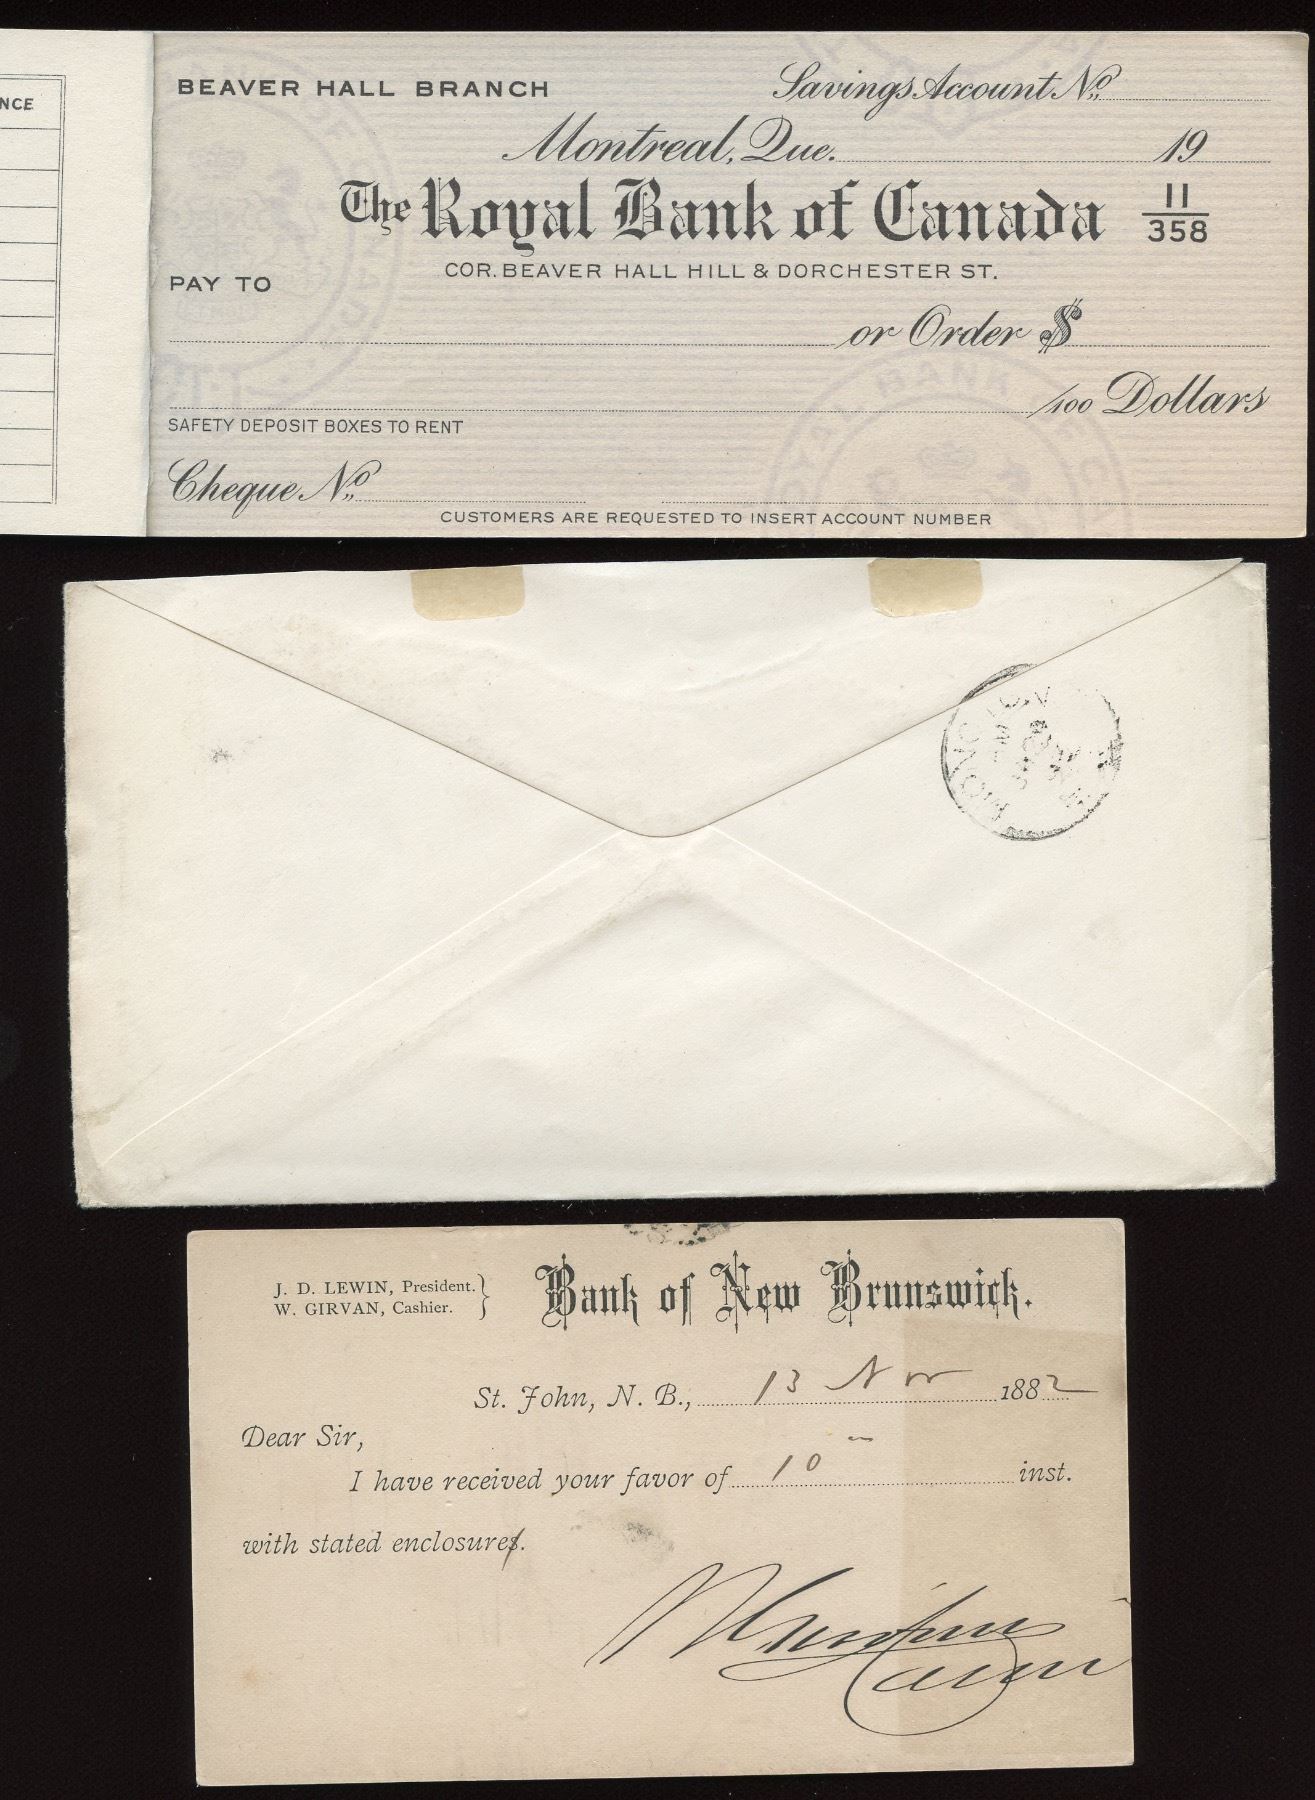 NCE
BEAVER HALL BRANCH Savings Account No.
Montreal, Que. 19
The Royal Bank of Canada 11/358
COR. BEAVER HALL HILL & DORCHESTER ST.
PAY TO
or Order $
/100 Dollars
SAFETY DEPOSIT BOXES TO RENT
Cheque No.
CUSTOMERS ARE REQUESTED TO INSERT ACCOUNT NUMBER
J. D. LEWIN, President.
W. GIRVAN, Cashier.
Bank of New Brunswick.
St. John, N. B., 13 Nov 1882
Dear Sir,
I have received your favor of 10 inst.
with stated enclosure.